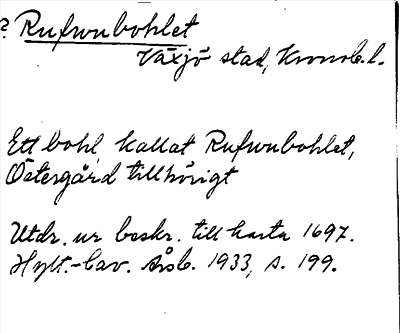 ? Rufwubohlet
Växjö stad, Kronob. l.
Ett bohl, kallat Rufwubohlet,
Östergård tillhörigt
Utdr. ur beskr. till karta 1697.
Hylt.-Cav. Årsb. 1933, s. 199.